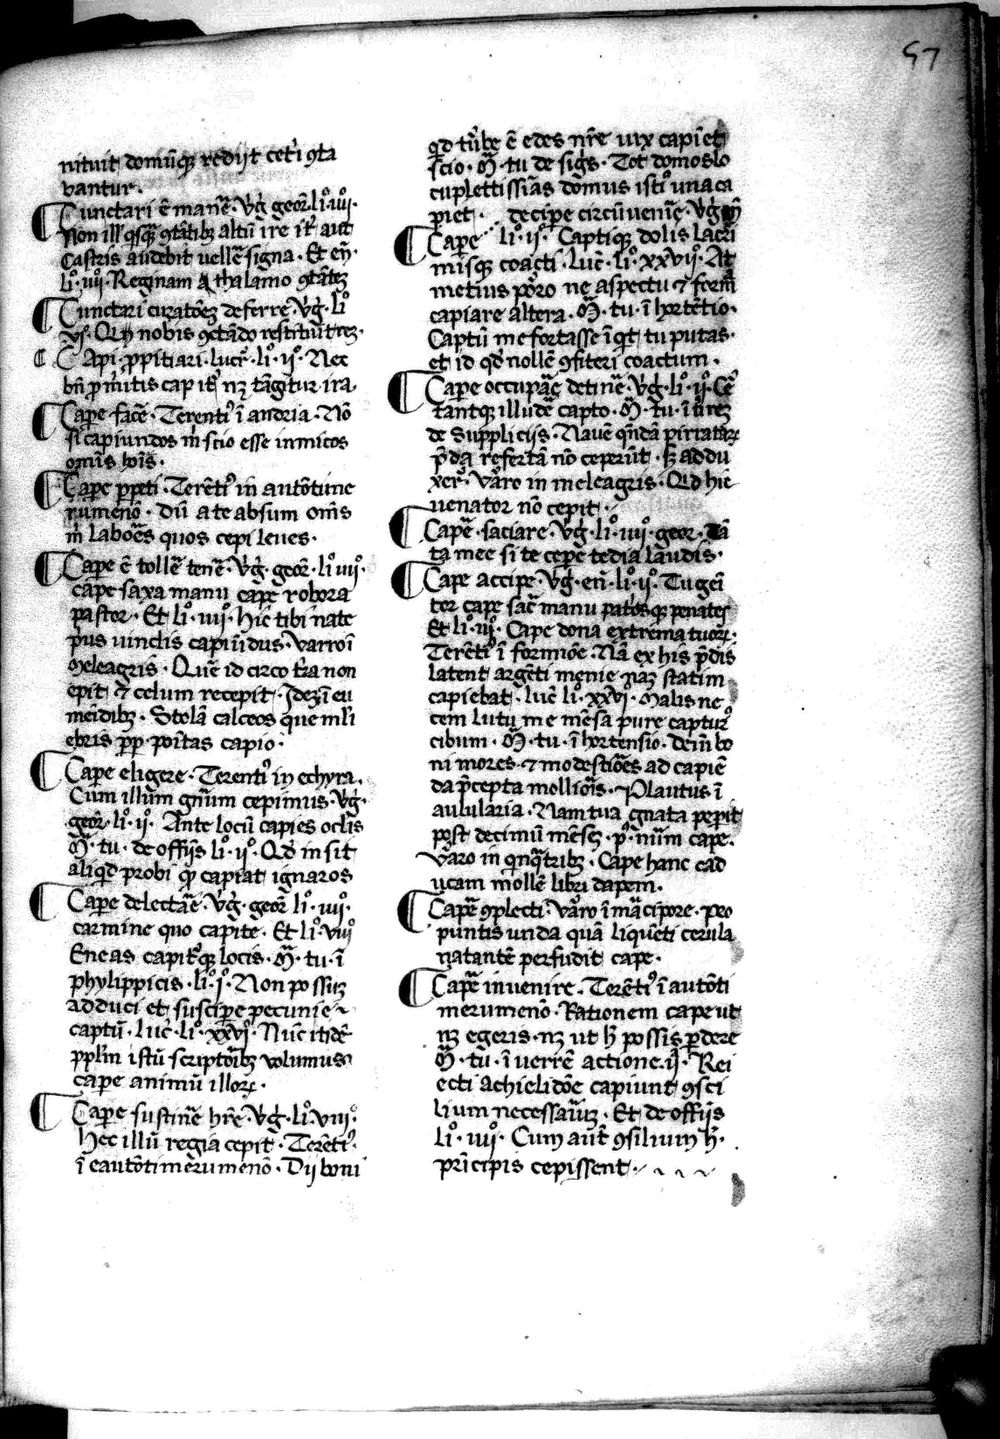 57
nituit domūqꝫ redijt cet̾i ꝯta
bantur.
Cunctari ē manē̄. V̾g̾. geor̄. li.̊ iiij.̊
Non ill' qͥsqͣ ꝯtātibꝫ altū ire it̾ aut
Castris audebit uellē signa. Et eñ.
li.̊ iiij.̊ Reginam thalamo ꝯtātēꝫ
Cunctari curatōeꝫ deferre. V̾g̾. li.̊
nobis ꝯctādo restituit reꝫ.
Capi. ꝓpitiari. lucr̄. li.̊ ij.̊ Nec
bn̄ ꝓmͥitis capit̾ nꝫ tāgitur ira.
Capꝑe. facē̄. Terentiꝰ ī andria. Nō
si capiundos m̄ scio esse inmicos
om̄is bois̄.
Capꝑe ꝑpeti. Terētiꝰ in autōtime
rumenō. Dū a te absum om̄s
m̄ laboēs quos cepi leues.
Capꝑe ē tollē tenē̄. V̾g̾. geor̄. li.̊ iiij.̊
cape saxa manu cape robora
pastor. Et li.̊ iiij.̊ Hic tibi nate
pͥus uinclis capiūdus. Varro ī
Meleagris. Quē id circo t̄ra non
epit ⁊ celum recepit. Idez ī eu
menidibꝫ. Stolā calceos que mlͥi
ebris ꝓp. poītas capio.
Capꝑe eligere. Terentiꝰ in echyra.
Cum illum gn̄um cepimus. V̾g̾.
geor̄. li.̊ ij.̊ Ante locū capies oclis
M̄. tu. de offīis li.̊ ij.̊ Qd̾ in sit
aliqd probi qͥ capiat ignaros
Capꝑe delectāē. V̾g̾. geor̄ li.̊ iiij.̊
carmine quo capite. Et li.̊ viij.̊
Eneas capit̾qꝫ locis. M̄. tu. ī
phylippicis. li.̊ j.̊ Non possuꝫ
adduci et suscipe pecunie
captū. luc̾. li.̊ xxvj.̊ Nūc itidē
pplīn istū scriptōibꝫ volumus
capꝑe animū illoꝝ.
Capꝑe sustinē̄ hr̄e. V̾g̾. li.̊ viij.̊
Hec illū regia cepit. Terētiꝰ.
ī eautōtimerumenō. Dij boni
qd tͥ̄bę ē edes nr̄e uix capiet
scio. M̄. tu de sigīs. Tot domos lo
cuplettissīas domus istiꝰ una ca
piet. decipe circūuenīē. V̾g̾ eñ
Capꝑe li.̊ ij.̊ Captiqꝫ dolis lacri
misqꝫ coacti. Luc̾. li.̊ xxvij.̊ At
metius poro ne aspectu ⁊ forma
capiare altera. M̄. tu. ī hortētio.
Captū me fortasse īqͥt tu putas.
et id qd nollē ꝯfiteri coactum.
Capꝑe occupāē detinē̄. V̾g̾. li.̊ ij.̊ Cer̄
tantqꝫ illudē capto. M̄. tu. ī ūreꝫ
de Suppliciis. Nauē qͥndā pirrataꝝ
p̄da refertā nō ceperūt. sꝫ addu
xer̄. Varo in meleagris. Qd̾ hic
uenator nō cepit.
Capꝑē. saciare. V̾g̾. li.̊ iiij.̊ geor. Tā
ta mee si te cepe tedia laudis.
Capꝑe accipe. V̾g̾. en̄. li.̊ ij.̊ Tu gēi
tor cape sac̄ manu pat̾osqꝫ penates
Et li.̊ iij.̊ Cape dona extrema tuoꝝ.
Terētiꝰ ī formiōe. Nā ex his p̄dis
latent argēti menie naꝫ statim
capiebat. luc̾ li.̊ xxvj.̊ Malis ne
cem lutū me mēsa pure capturꝰ
cibum. M̄. tu. ī hortensio. Deinī bo
ni mores ⁊ modestiōes ad capiē
da p̄cepta molliōis. Plautus ī
aulularia. Nam tua gnata peperit
post decimū mēsꝫ. pꝰ. nūm cape.
Varo in qͥnqͣtribꝫ. Cape hanc cad
ucam mollē libri dapem.
Capꝑē ꝯplecti. Varo ī māicipore. pro
puntis unda quā liqueti cerula
natantē perfudit cape.
Capꝑē inuenire. Terētiꝰ ī autōti
merumenō. Rationem cape ut
nꝫ egeris. nꝫ ut h̄ possis ꝑdere
M̄. tu. ī uerrē actione. ij.̊ Rei
ecti achielidōe capiunt ꝯsci
lium necessaiūꝫ. Et de offīis
li.̊ iiij.̊ Cum aūt ꝯsilium h̄.
prīcipis cepissent.